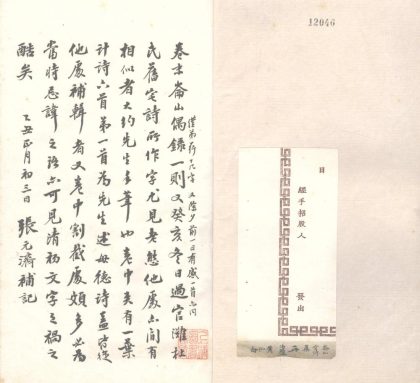 卷末崙山偶錄一則又癸亥冬日過官灘杜
民舊宅詩所作字尤見老態他處亦間有
相似者大約先生手筆也卷中失有一葉
計詩六首第一首為先生述母德詩蓋
他處補輯者又卷中割截處頗多必為
當時忌諱之語亦可見清初文字之禍之
酷矣
乙丑正月初三日 張元濟補記
12046
日
經手招股人
發出